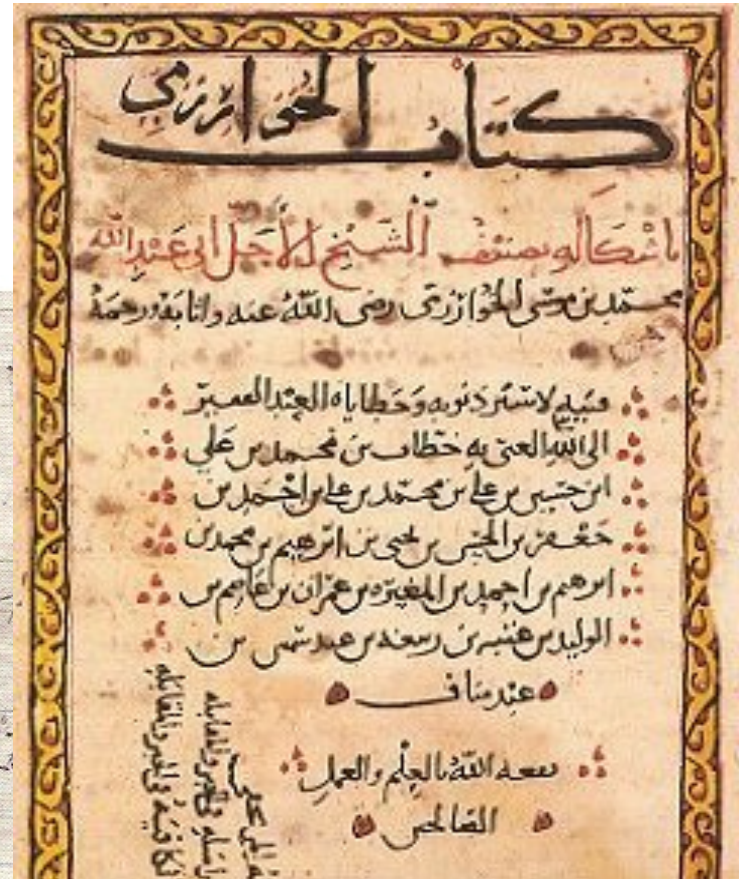 كتاب الخوارزمي
الشيخ الأجل ابي عبد الله
محمد بن موسى الخوارزمي رضى الله عنه واثابه ورحمة
لاستر ذنوبه وخطاياه العبد الفقير
الى الله الغنى به خطاب بن محمد بن علي
ابن حسين بن علي بن محمد بن علي بن احمد بن
جعفر بن الحسين بن يحيى بن ابرهيم بن محمد بن
ابرهيم بن احمد بن المغيره بن عمران بن عاصم بن
الوليد بن عتبه بن ربيعه بن عبد شمس بن
عبد مناف
نفعه الله بالعلم والعمل
الصالحين